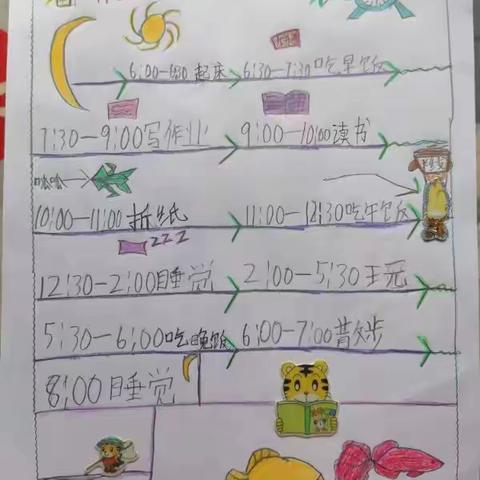 6:00—6:30 起床 6:30—7:30吃早饭
7:30—9:00写作业 9:00—10:00读书
10:00—11:00 折纸 11:00—12:30吃午饭
zzz
12:30—2:00睡觉 2:00—5:30王元
5:30—6:00吃晚饭 6:00—7:00昔文步
8:00睡觉